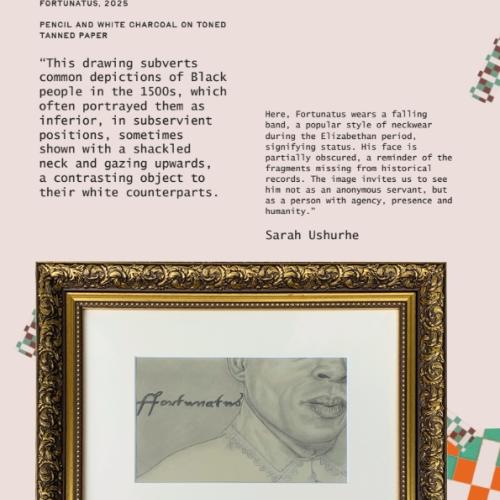 FORTUNATUS, 2025
PENCIL AND WHITE CHARCOAL ON TONED
TANNED PAPER
“This drawing subverts
common depictions of Black
people in the 1500s, which
often portrayed them as
inferior, in subservient
positions, sometimes
shown with a shackled
neck and gazing upwards,
a contrasting object to
their white counterparts.
Here, Fortunatus wears a falling
band, a popular style of neckwear
during the Elizabethan period,
signifying status. His face is
partially obscured, a reminder of the
fragments missing from historical
records. The image invites us to see
him not as an anonymous servant, but
as a person with agency, presence and
humanity.”
Sarah Ushurhe
ffortunatus